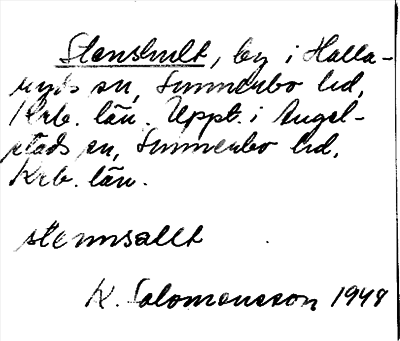 Stenshult, by i Halla-
ryds sn, Sunnerbo hd,
Krb. län. Uppt. i Angel-
stads sn, Sunnerbo hd,
Krb. län.
stennsallt
K. Salomonsson 1948